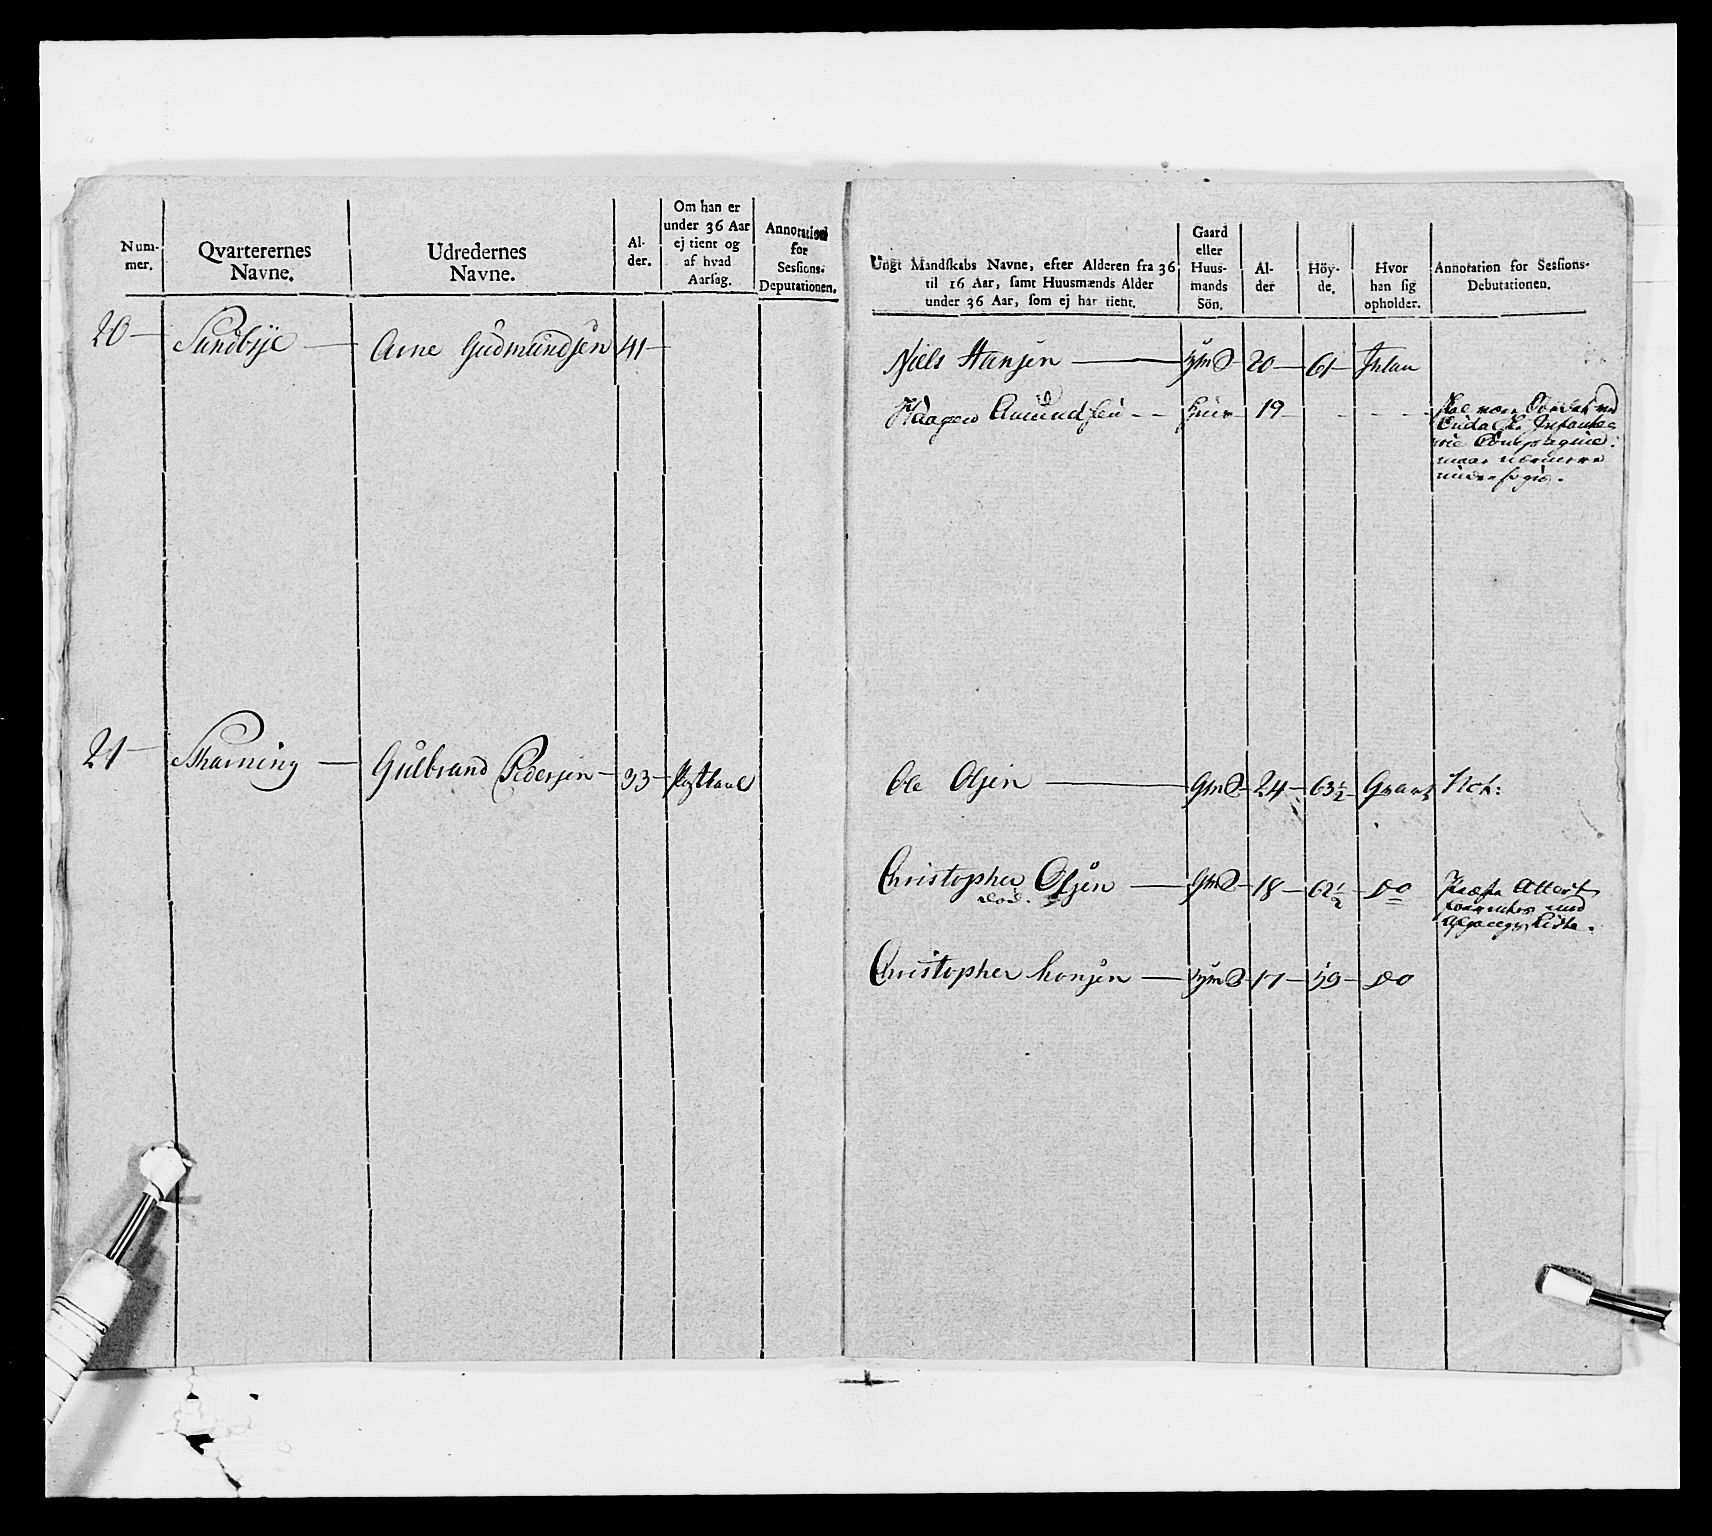 Num-
mer.
Qvarterernes
Navne.
Udredernes
Navne.
Al-
der.
Om han er
under 36 Aar
ej tient og
af hvad
Aarsag.
Annotation
for
Sessions-
Deputationen.
20 Sundbye Arne Gudmundsen 41
21 Skarning Gulbrand Pedersen 33
Ungt Mandskabs Navne, efter Alderen fra 36
til 16 Aar, samt Huusmænds Alder
under 36 Aar, som ej har tient.
Gaard
eller
Huus-
mands
Sön.
Al-
der
Höy-
de.
Hvor
han sig
opholder.
Annotation for Sessions-
Debutationen.
Niels Hansen 20 61
Haagen Amundsen 19
Compagnie
Ole Olsen GmS 24 63 1/2
Christopher Olsen GmS 18 62 1/2 Do
død. Attest
med
Afgangs Liste.
Christopher 17 59 Do